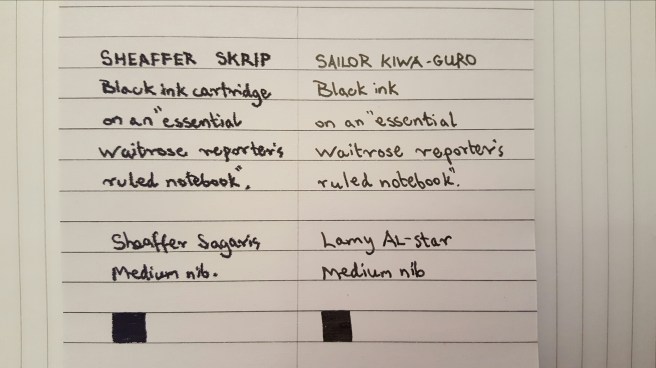 SHEAFFER SKRIP
Black ink cartridge
on an "essential
Waitrose reporter's
ruled notebook".
Sheaffer Sagaris
Medium nib.
SAILOR KIWA-GURO
Black ink
on an "essential
Waitrose reporter's
ruled notebook".
Lamy AL-star
Medium nib